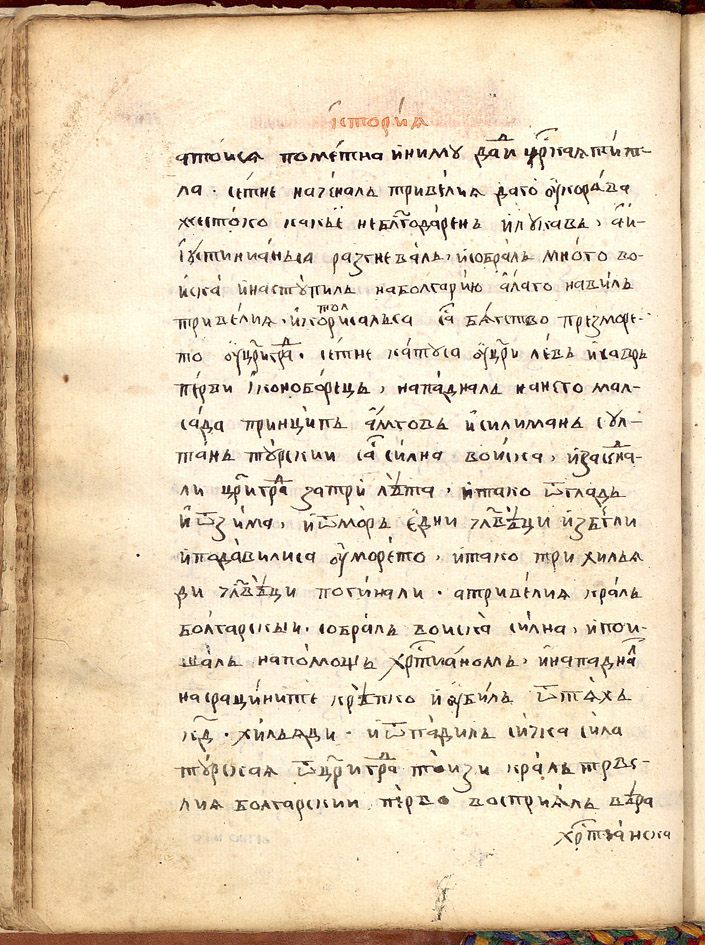 їсторїѧ
атоисѧ помѣтна и нимꙋ даⷣи цр҃каѧ тит-
ла · сетне начѣналь тривелиѧ да го ꙋкорѧва
жестоко какъ е небл҃годарень и лꙋкавь, а и-
їꙋстиниань са разгневаль, и собраль много во-
иска и настꙋпиль на болгарїю а лаго навиль
тривелиѧ · и искорисалса са бѧгство презморе-
то ꙋ цр҃игра́ⷣ · сетне катꙋса ꙋ цр҃и левь исаврь
перви їконоборецъ, нападналь на него мал-
сада принципь амговь и силимань сꙋл-
тань тꙋрскии са силна воиска, и заскна-
ли цр҃играⷣ за три лѣта, и тако ѿ гладь
и ѿ зима, и ѿ морь едни чл҃вѣци избѣгли
и подавилиса ꙋ морето, и тако три хилѧ
ди чл҃вѣци погинали · а тривелиѧ краль
болгарскыи · собраль воиска силна, и пои-
шаль на помощь хрⷭ҇тїаномъ, и нападнаⷧ
на сращините крѣпко и ꙋбиль ѿ тѧхь
к҃д · хильѧди · и ѿпадиль сичка сила
тꙋрскаѧ ѿ цр҃играⷣ този краль трве-
лиѧ болгарскии перво восприѧль вѣра
хрⷭ҇тїанска